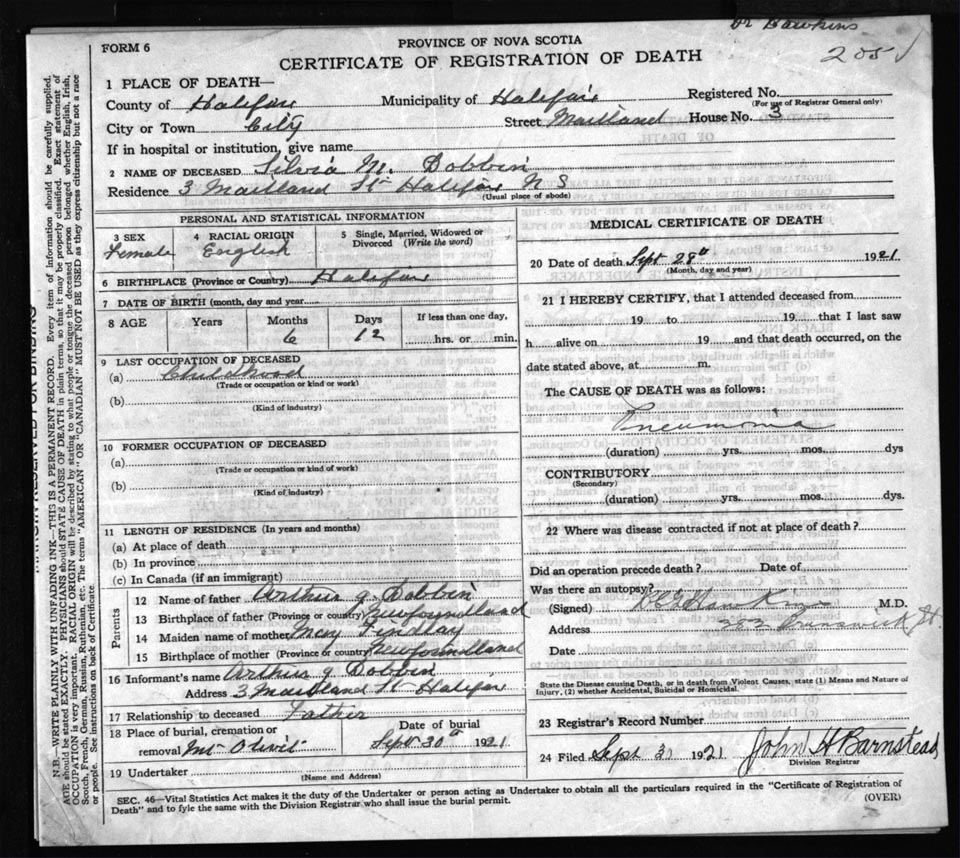 Dr Hawkins
205 ✓
FORM 6
PROVINCE OF NOVA SCOTIA
CERTIFICATE OF REGISTRATION OF DEATH
1 PLACE OF DEATH—
County of Halifax Municipality of Halifax Registered No.
(For use of Registrar General only)
City or Town City Street Maitland House No. 3
If in hospital or institution, give name
2 NAME OF DECEASED Silvia M. Dobbin
Residence 3 Maitland St Halifax N S
(Usual place of abode)
PERSONAL AND STATISTICAL INFORMATION
3 SEX 4 RACIAL ORIGIN 5 Single, Married, Widowed or
Divorced (Write the word)
Female English
6 BIRTHPLACE (Province or Country) Halifax
7 DATE OF BIRTH (month, day and year)
8 AGE Years Months Days If less than one day,
6 12 hrs. or min.
9 LAST OCCUPATION OF DECEASED
(a) Childhood
(Trade or occupation or kind or work)
(b)
(Kind of industry)
10 FORMER OCCUPATION OF DECEASED
(a)
(Trade or occupation or kind of work)
(b)
(Kind of industry)
11 LENGTH OF RESIDENCE (In years and months)
(a) At place of death
(b) In province
(c) In Canada (if an immigrant)
Parents
12 Name of father Arthur J. Dobbin
13 Birthplace of father (Province or country) Newfoundland
14 Maiden name of mother Mary Findlay
15 Birthplace of mother (Province or country) Newfoundland
16 Informant's name Arthur J Dobbin
Address 3 Maitland St Halifax
17 Relationship to deceased Father
18 Place of burial, cremation or Date of burial
removal Mt Olivit Sept 30th 1921
19 Undertaker
(Name and Address)
MEDICAL CERTIFICATE OF DEATH
20 Date of death Sept 28th 1921
(Month, day and year)
21 I HEREBY CERTIFY, that I attended deceased from
19 to 19 that I last saw
h alive on 19 and that death occurred, on the
date stated above, at m.
The CAUSE OF DEATH was as follows:
Pneumonia
(duration) yrs. mos. dys
CONTRIBUTORY
(Secondary)
(duration) yrs. mos. dys.
22 Where was disease contracted if not at place of death?
Did an operation precede death? Date of
Was there an autopsy?
(Signed) Hawkins M.D.
Address 202 Brunswick St.
Date
State the Disease causing Death, or in death from Violent Causes, state (1) Means and Nature of
Injury, (2) whether Accidental, Suicidal or Homicidal.
23 Registrar's Record Number
24 Filed Sept 1921 John H Barnstead
Division Registrar
SEC. 46—Vital Statistics Act makes it the duty of the Undertaker or person acting as Undertaker to obtain all the particulars required in the "Certificate of Registration of
Death" and to fyle the same with the Division Registrar who shall issue the burial permit.
(OVER)
MARGIN RESERVED FOR BINDING
N.B.—WRITE PLAINLY WITH UNFADING INK—THIS IS A PERMANENT RECORD. Every item of information should be carefully supplied.
AGE should be stated EXACTLY. PHYSICIANS should STATE CAUSE OF DEATH in plain terms, so that it may be properly classified. Exact statement of
OCCUPATION is very important. RACIAL ORIGIN will be described by stating to what people or tongue the deceased person belonged, whether English, Irish,
Scotch, French, German, Russian, Ruthenian, etc. The terms "AMERICAN" OR "CANADIAN" MUST NOT BE USED as they express citizenship but not a race
or people. See instructions on back of Certificate